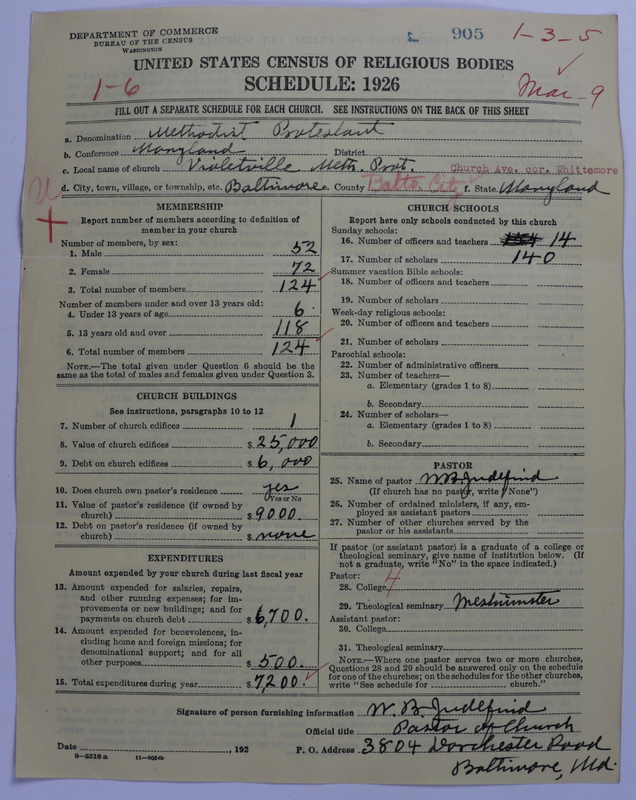 DEPARTMENT OF COMMERCE
BUREAU OF THE CENSUS
WASHINGTON
905
1-3-5
UNITED STATES CENSUS OF RELIGIOUS BODIES
SCHEDULE: 1926
1-6
Mar-9
FILL OUT A SEPARATE SCHEDULE FOR EACH CHURCH. SEE INSTRUCTIONS ON THE BACK OF THIS SHEET
a. Denomination Methodist Protestant
b. Conference Maryland District
c. Local name of church Violetville Meth. Prot. Church Ave. cor. Whittemore
d. City, town, village, or township, etc. Baltimore e. County Balto City f. State Maryland
U
MEMBERSHIP
Report number of members according to definition of
member in your church
Number of members, by sex:
1. Male 52
2. Female 72
3. Total number of members 124
Number of members under and over 13 years old:
4. Under 13 years of age 6
5. 13 years old and over 118
6. Total number of members 124
NOTE.—The total given under Question 6 should be
same as the total of males and females given under Question 3.
CHURCH BUILDINGS
See instructions, paragraphs 10 to 12
7. Number of church edifices 1
8. Value of church edifices $ 25,000
9. Debt on church edifices $ 6,000
10. Does church own pastor's residence yes
Yes or No
11. Value of pastor's residence (if owned by
church) $ 9000.
12. Debt on pastor's residence (if owned by
church) $ none
EXPENDITURES
Amount expended by your church during last fiscal year
13. Amount expended for salaries, repairs,
and other running expenses; for im-
provements or new buildings; and for
payments on church debt $ 6,700.
14. Amount expended for benevolences, in-
cluding home and foreign missions; for
denominational support; and for all
other purposes $ 500.
15. Total expenditures during year $ 7,200.
CHURCH SCHOOLS
Report here only schools conducted by this church
Sunday schools:
16. Number of officers and teachers 14
17. Number of scholars 140
Summer vacation Bible schools:
18. Number of officers and teachers
19. Number of scholars
Week-day religious schools:
20. Number of officers and teachers
21. Number of scholars
Parochial schools:
22. Number of administrative officers
23. Number of teachers—
a. Elementary (grades 1 to 8)
b. Secondary
24. Number of scholars—
a. Elementary (grades 1 to 8)
b. Secondary
PASTOR
25. Name of pastor W.B. Judefind
(If church has no pastor, write "None")
26. Number of ordained ministers, if any, em-
ployed as assistant pastors
27. Number of other churches served by the
pastor or his assistants
If pastor (or assistant pastor) is a graduate of a college or
theological seminary, give name of institution below. (If
not a graduate, write "No" in the space indicated.)
Pastor:
28. College 4
29. Theological seminary Westminster
Assistant pastor:
30. College
31. Theological seminary
NOTE.—Where one pastor serves two or more churches,
Questions 28 and 29 should be answered only on the schedule
for one of the churches; on the schedules for the other churches,
write "See schedule for church."
Signature of person furnishing information W. B. Judefind
Official title Pastor of Church
Date , 192 P. O. Address 3804 Dorchester Road
8—5518a 11—9054b
Baltimore, Md.